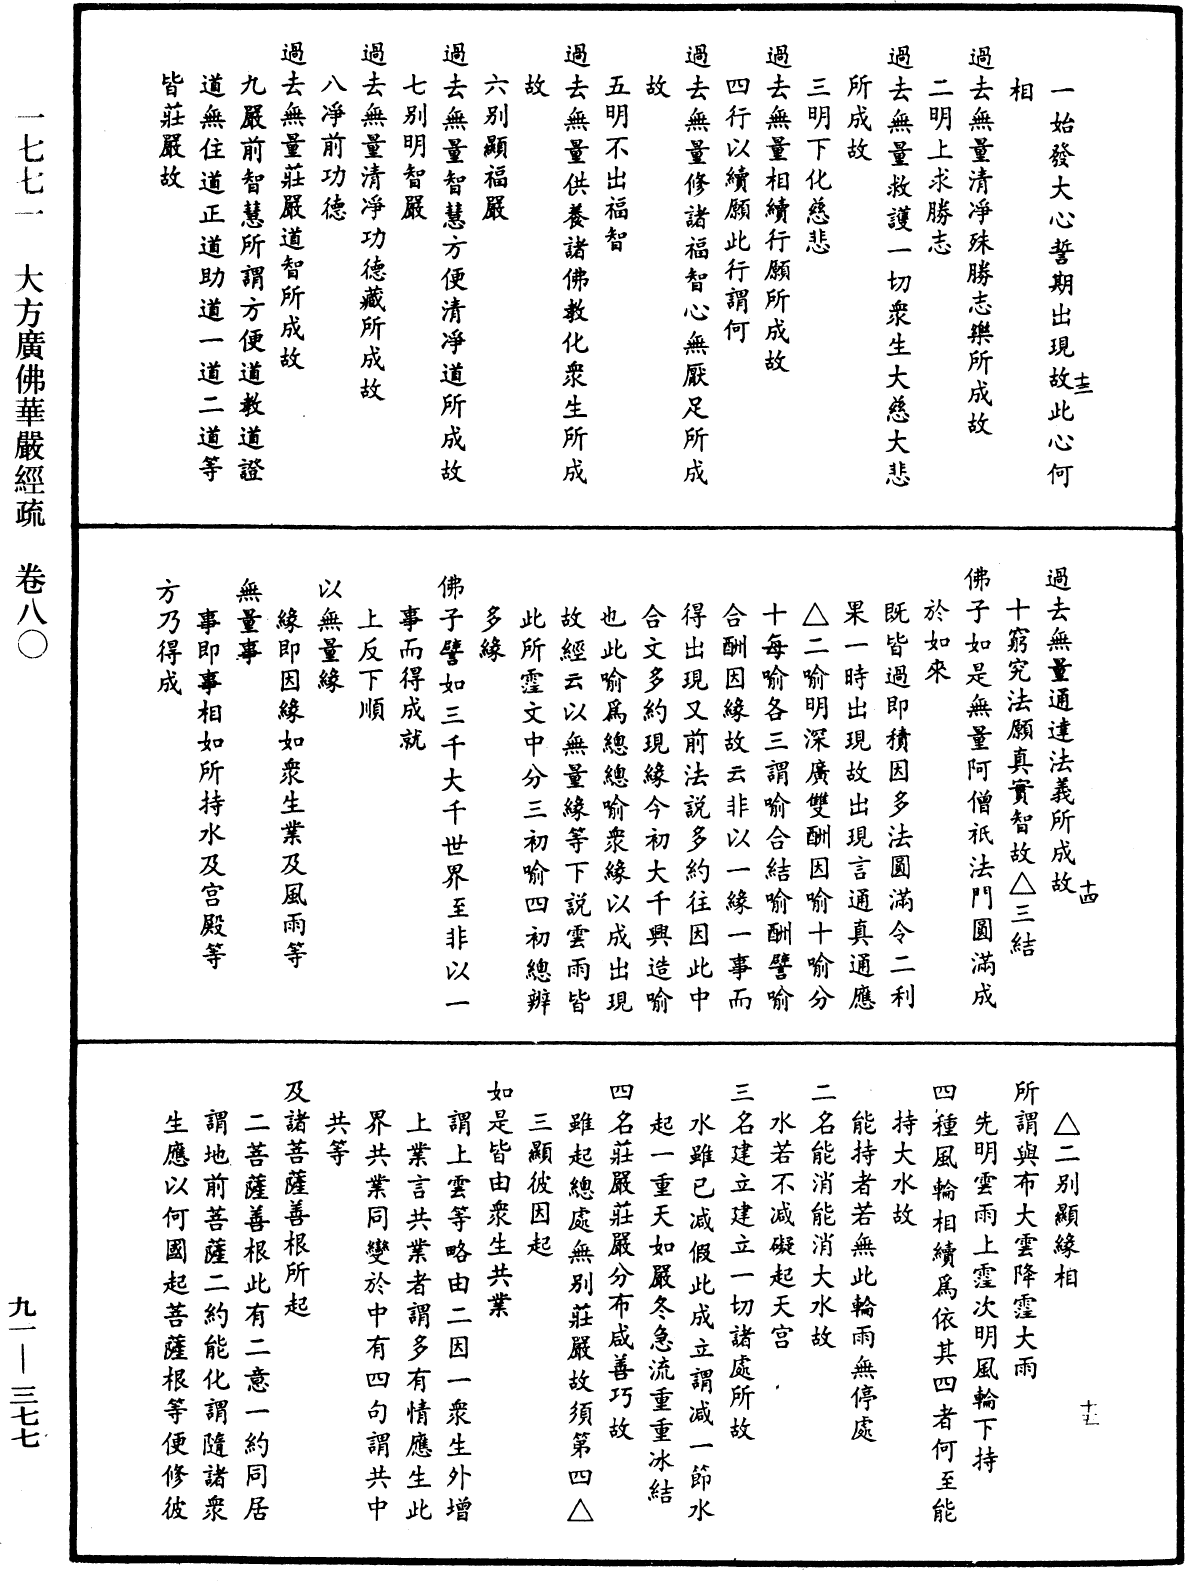 一始發大心誓期出現故此心何
相
過去無量清淨殊勝志樂所成故
二明上求勝志
過去無量救護一切衆生大慈大悲
所成故
三明下化慈悲
過去無量相續行願所成故
四行以續願此行謂何
過去無量修諸福智心無厭足所成
故
五明不出福智
過去無量供養諸佛教化衆生所成
故
六別顯福嚴
過去無量智慧方便清淨道所成故
七別明智嚴
過去無量清淨功德藏所成故
八淨前功德
過去無量莊嚴道智所成故
九嚴前智慧所謂方便道教道證
道無住道正道助道一道二道等
皆莊嚴故
十三
過去無量通達法義所成故
十窮究法願真實智故△三結
佛子如是無量阿僧祇法門圓滿成
於如來
既皆過即積因多法圓滿令二利
果一時出現故出現言通真通應
△二喻明深廣雙酬因喻十喻分
十每喻各三謂喻合結喻酬譬喻
合酬因緣故云非以一緣一事而
得出現又前法説多約往因此中
合文多約現緣今初大千興造喻
也此喻爲總總喻衆緣以成出現
故經云以無量緣等下説雲雨皆
此所霔文中分三初喻四初總辨
多緣
佛子譬如三千大千世界至非以一
事而得成就
上反下順
以無量緣
緣即因緣如衆生業及風雨等
無量事
事即事相如所持水及宫殿等
方乃得成
十四
△二別顯緣相
所謂興布大雲降霔大雨
先明雲雨上霔次明風輪下持
四種風輪相續爲依其四者何至能
持大水故
能持者若無此輪雨無停處
二名能消能消大水故
水若不減礙起天宫
三名建立建立一切諸處所故
水雖已減假此成立謂減一節水
起一重天如嚴冬急流重重冰結
四名莊嚴莊嚴分布咸善巧故
雖起總處無別莊嚴故須第四△
三顯彼因起
如是皆由衆生共業
謂上雲等略由二因一衆生外增
上業言共業者謂多有情應生此
界共業同變於中有四句謂共中
共等
及諸菩薩善根所起
二菩薩善根此有二意一約同居
謂地前菩薩二約能化謂隨諸衆
生應以何國起菩薩根等便修彼
十五
一七七一　大方廣佛華嚴經疏　卷八〇
九一—三七七